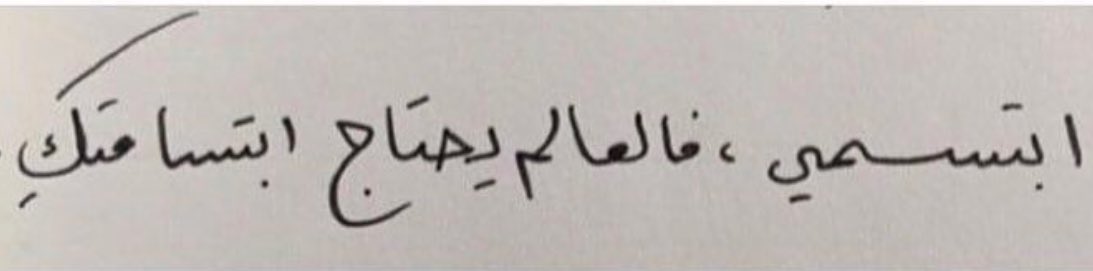 ابتسمي ، فالعالم يحتاج ابتسامتكِ.